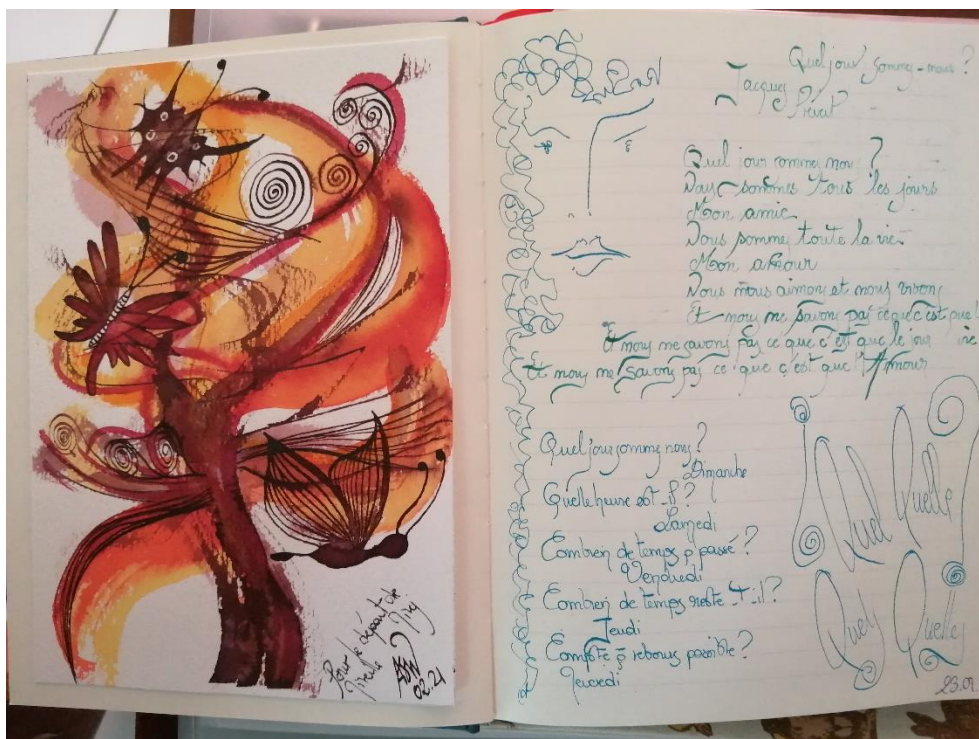 Pour le départ de
02.21
Quel jour sommes-nous ?
Jacques
Prévert
Quel jour sommes nous ?
Nous sommes tous les jours
Mon amie
Nous sommes toute la vie
Mon amour
Nous nous aimons et nous vivons
Et nous ne savons pas ce que c'est que
Et nous ne savons pas ce que c'est que le jour
Et nous ne savons pas ce que c'est que l'Amour
Quel jour sommes nous ?
Dimanche
Quelle heure est-il ?
Samedi
Combien de temps passé ?
Vendredi
Combien de temps reste-t-il ?
Jeudi
Compte à rebours possible ?
Quel Quelle
Quels Quelles